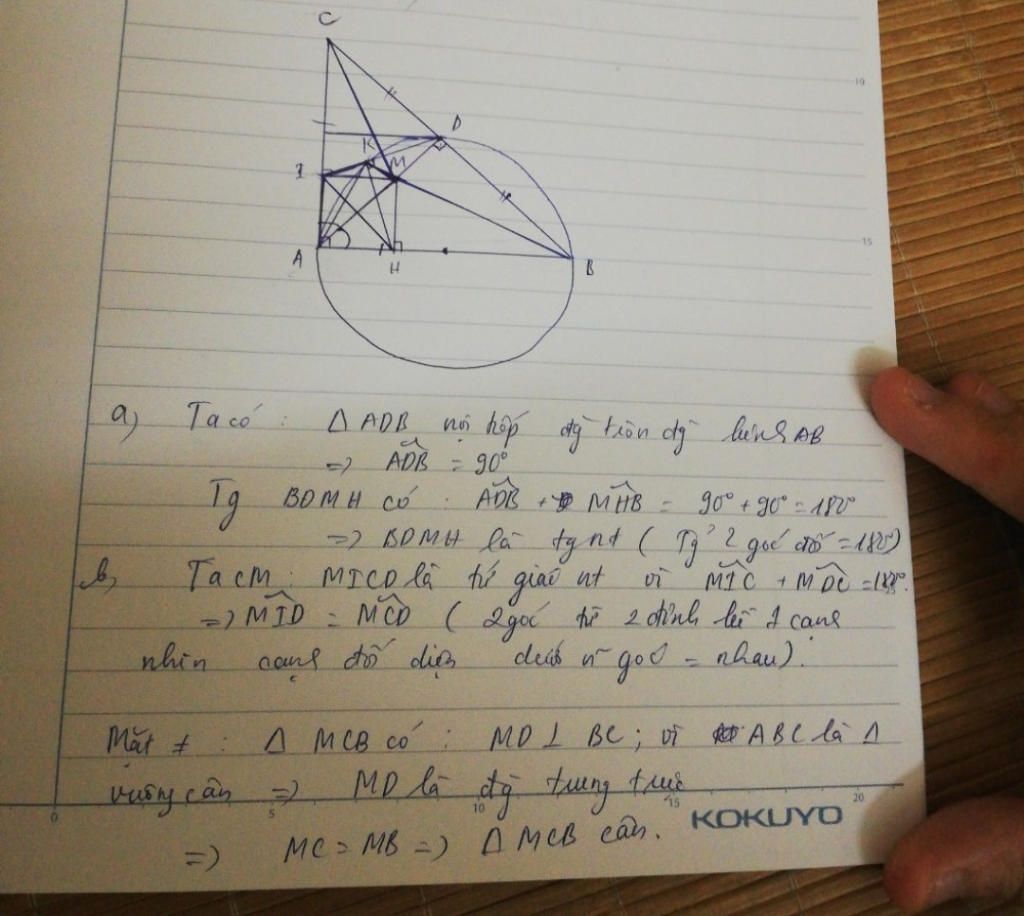 C
D
K
M
I
A
H
B
10
15
a) Ta có : Δ ADB nội tiếp đg tròn đg kính AB
=> ADB = 90°
Tg BDMH có : ADB + MHB = 90° + 90° = 180°
=> BDMH là tgnt ( Tg 2 góc đối = 180°)
b, Ta CM : MICD là tứ giác nt vì MIC + MDC = 180°.
=> MID = MCD ( 2 góc từ 2 đỉnh kề 1 cạnh
nhìn cạnh đối diện dưới góc = nhau).
Mặt ≠ : Δ MCB có : MD ⊥ BC ; vì ABC là Δ
vuông cân => MD là đg trung trực
0 5 10 15 20
KOKUYO
=> MC = MB => Δ MCB cân.